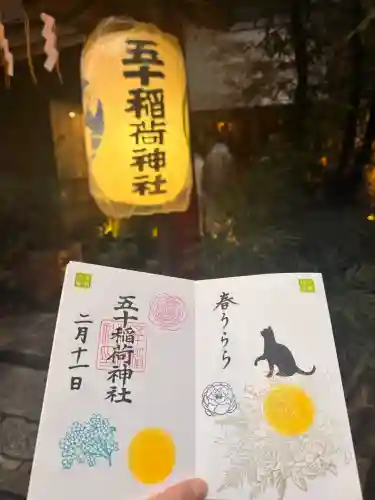 五十稲荷神社
春うらら
五十稲荷神社
二月十一日